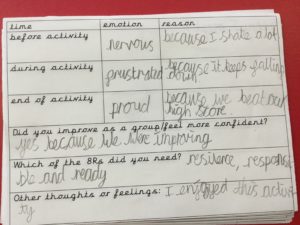 time emotion reason
before activity nervous because I shake a lot
during activity frustrated because it keeps falling
down
end of activity proud because we beat our
high score
Did you improve as a group/feel more confident?
yes because we were improving
Which of the 8Rs did you need? resilience, responsi
ble and ready
Other thoughts or feelings: I enjoyed this activi
ty